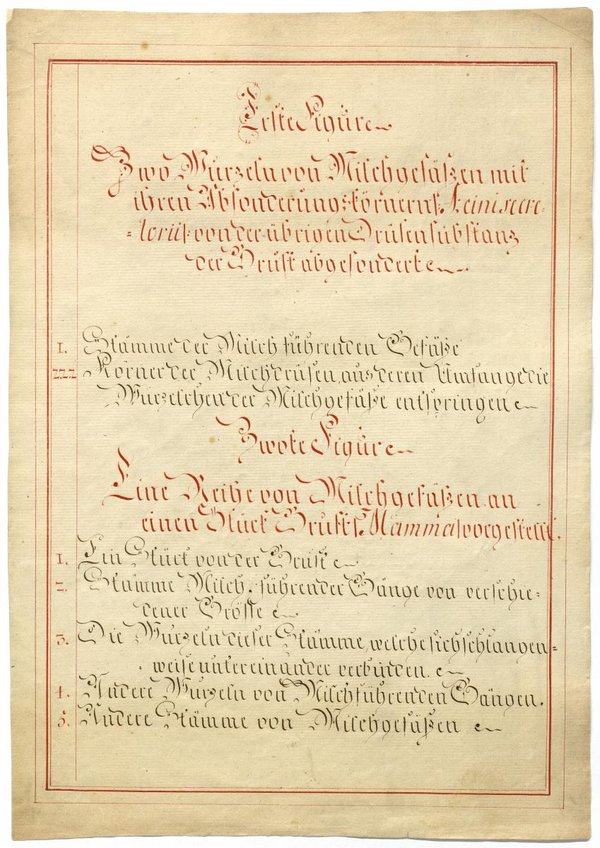 Erste Figur
Zwo Wurzeln von Milchgefäßen mit
ihren Absonderungskörnern f. Acini secre-
-torii von der übrigen Drüsensubstanz
der Brust abgesondert
1. Stämme der Milch führenden Gefäße
222 Körner der Milchdrüsen, aus deren Umfange die
Würzelchen der Milchgefäße entspringen
Zwote Figur
Eine Reihe von Milchgefäßen an
einen Stück Brust f. Mamma vorgestellt.
1. Ein Stück von der Brust
2. Stämme Milch führender Gänge von verschie-
dener Grösse
3. Die Wurzeln dieser Stämme, welche sich schlangen-
weise untereinander verbinden.
4. Andere Wurzeln von Milchführenden Gängen.
5. Andere Stämme von Milchgefäßen